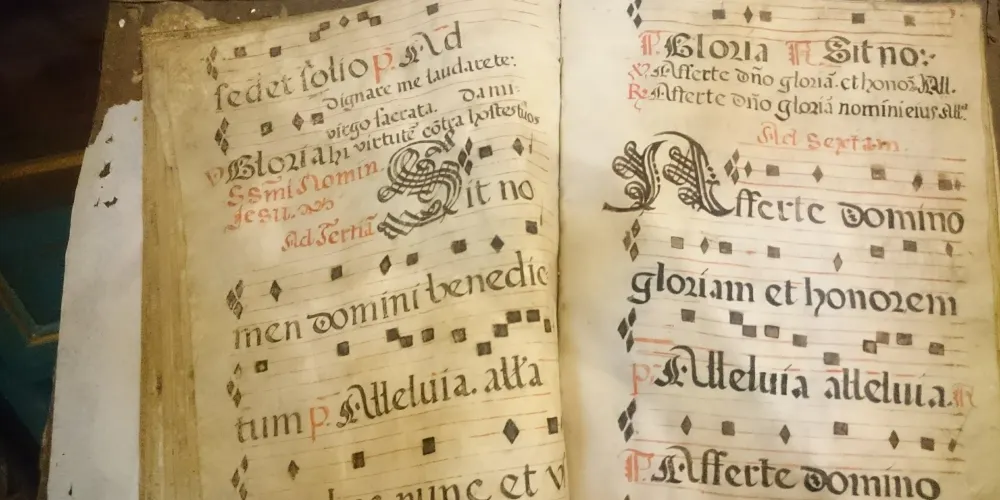 sedet solio p. Ad
Dignare me laudarete:
virgo sacrata. Da mi-
V Gloria hi virtutē cōtra hostes tuos
SSmi Nomin
Jesu.
Ad Tertiā
Sit no
men domini benedic
tum p. Alleluia. alľa
nunc et
P. Gloria R Sit no:
V. Afferte dño gloriā. et honorē. All.
R. Afferte dño gloriā nomini eius All.
Ad Sextam.
Afferte domino
gloriam et honorem
p. Alleluia alleluia. R
P. Afferte domino